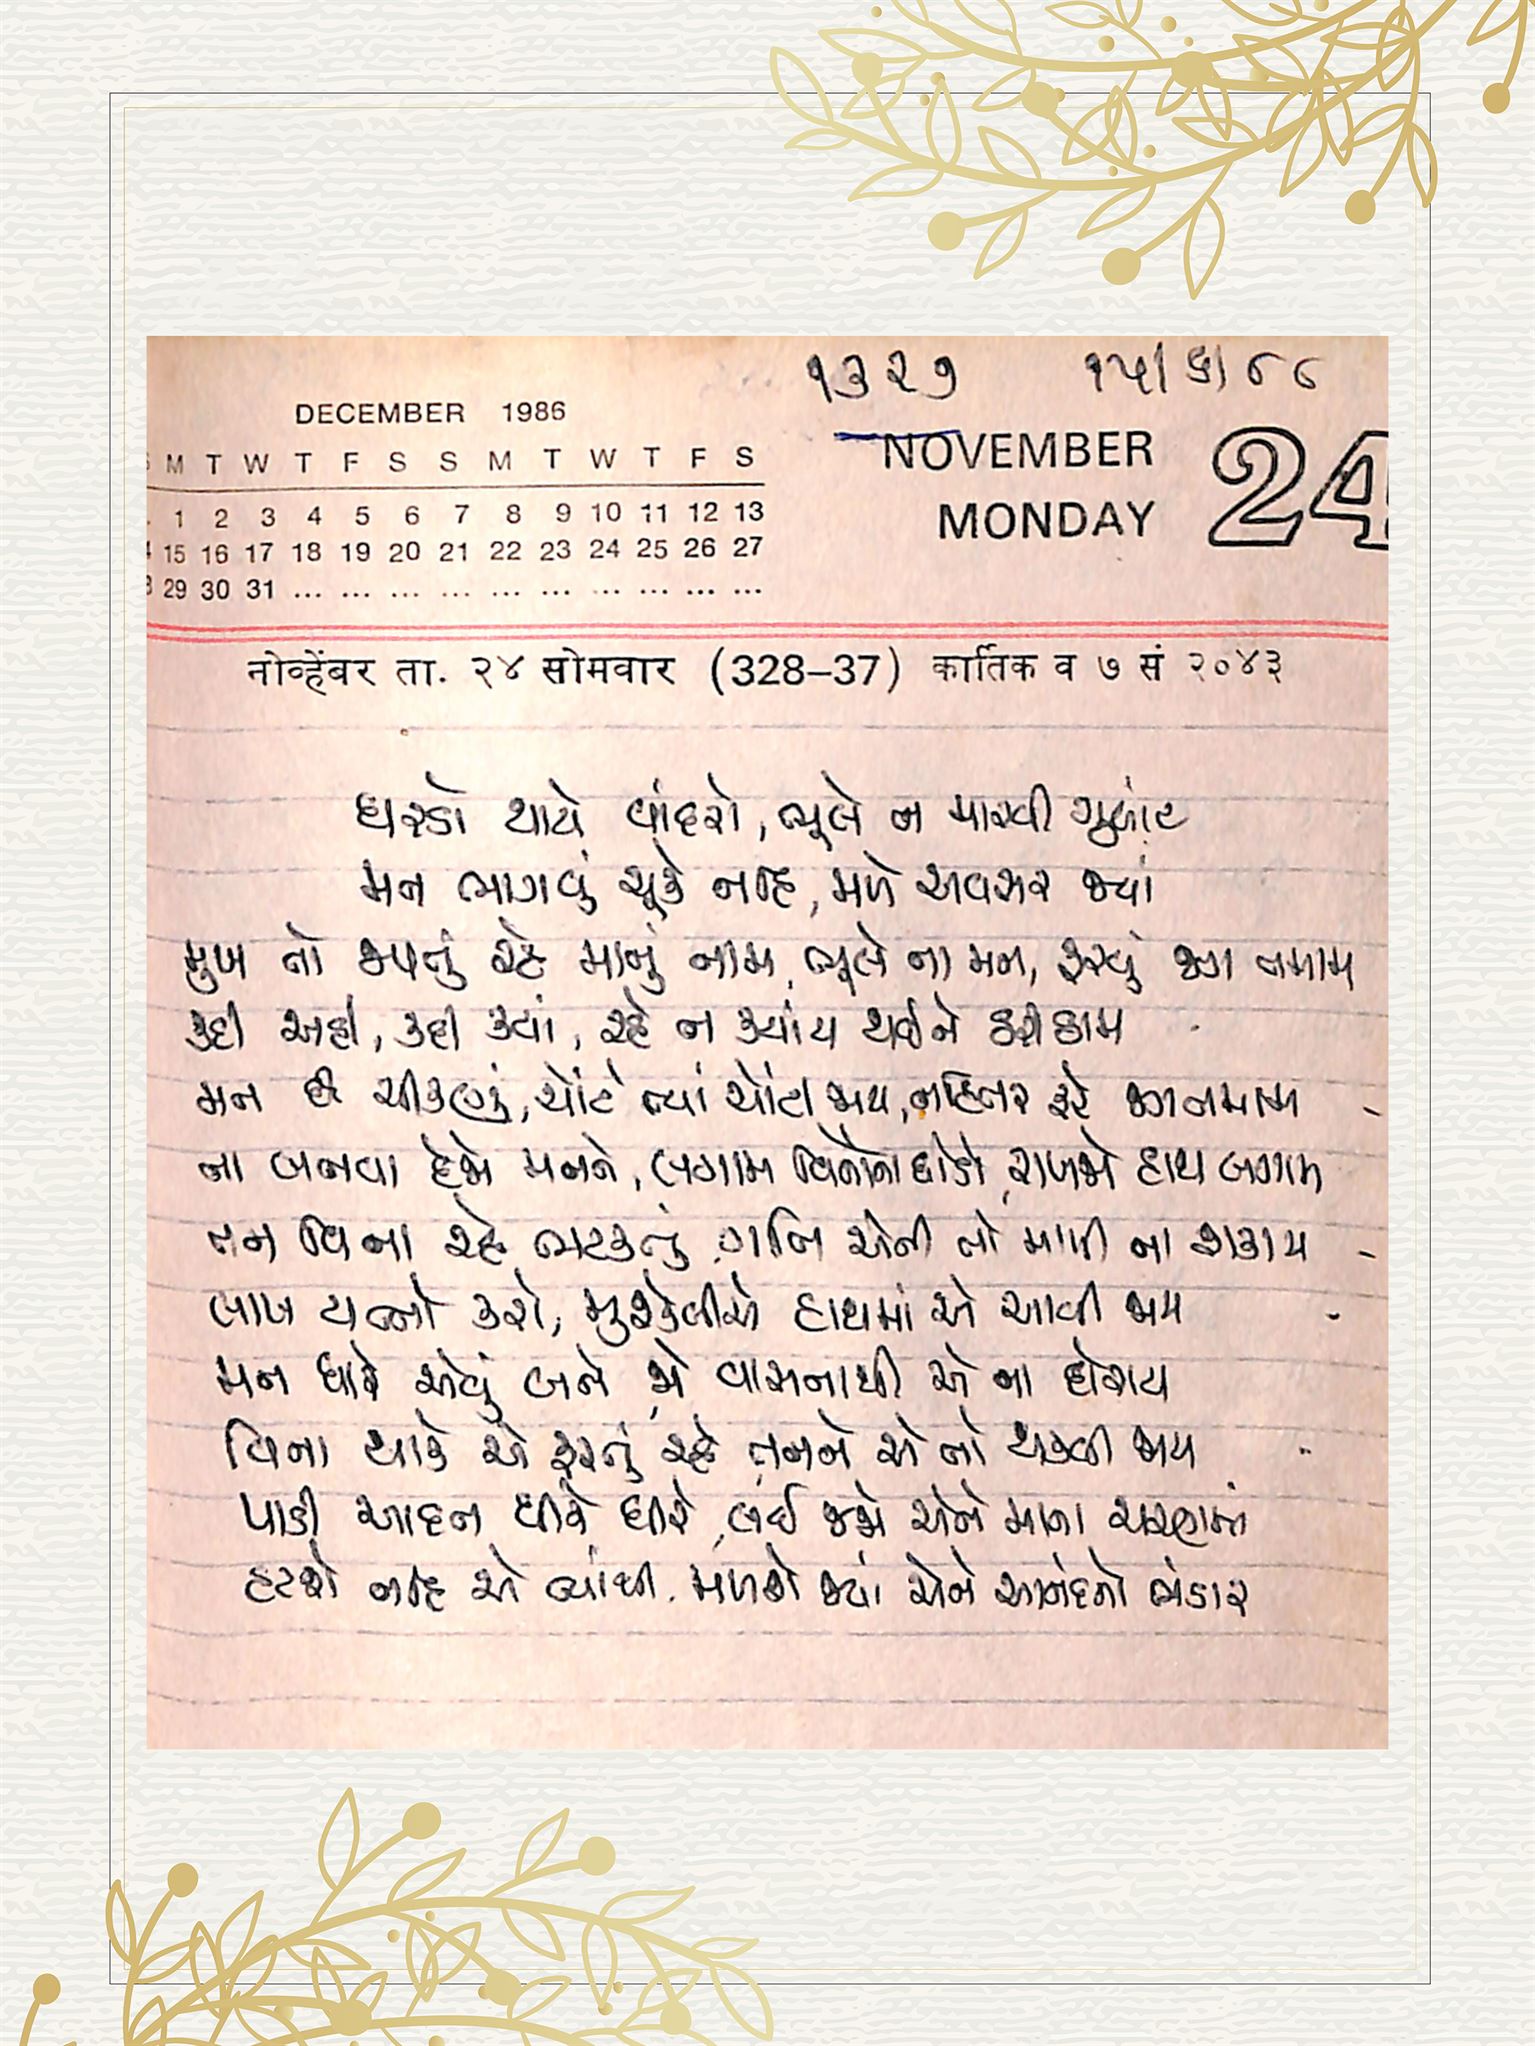 ૧૩૨૭ ૧૫/૬/૮૮
DECEMBER 1986
S M T W T F S S M T W T F S
1 2 3 4 5 6 7 8 9 10 11 12 13
15 16 17 18 19 20 21 22 23 24 25 26 27
29 30 31 ... ... ... ... ... ... ... ... ... ... ...
NOVEMBER
MONDAY
24
नोव्हेंबर ता. २४ सोमवार (328–37) कार्तिक व ७ सं २०४३
ઘરડો થાયે વાંદરો, ભૂલે ન મારવી ગુળાંટ
મન ભાગવું ચૂકે નહિ, મળે અવસર જ્યાં
મુખ તો જપતું રહે માનું નામ, ભૂલે ના મન, ફરવું જગ તમામ
કદી અહીં, કદી ક્યાં, રહે ન ક્યાંય થઈને ઠરીઠામ
મન છે ચીકણું, ચોંટે ત્યાં ચોંટી જાય, નહિતર ફરે જગતમામ
ના બનવા દેજે મનને, લગામ વિનાનો ઘોડો, રાખજે હાથ લગામ
તન વિના રહે ભટકતું, ગતિ એની તો માપી ના શકાય
લાખ યત્નો કરો, મુશ્કેલીએ હાથમાં એ આવી જાય
મન ધારે એવું બને, જો વાસનાથી એ ના દોરાય
વિના થાકે એ ફરતું રહે, તનને એ તો થકવી જાય
પાડી આદત ધીરે ધીરે, લઈ જજે એને માના ચરણમાં
હટશે નહિ એ ત્યાંથી, મળશે જ્યાં એને આનંદનો ભંડાર